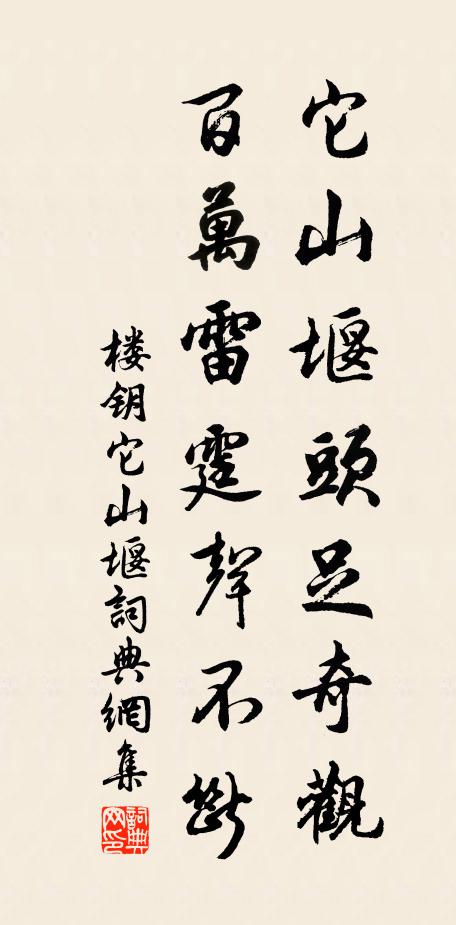 它山堰頭足奇觀
百萬雷霆聲不斷
楼钥它山堰詞典網集
詞典
网印